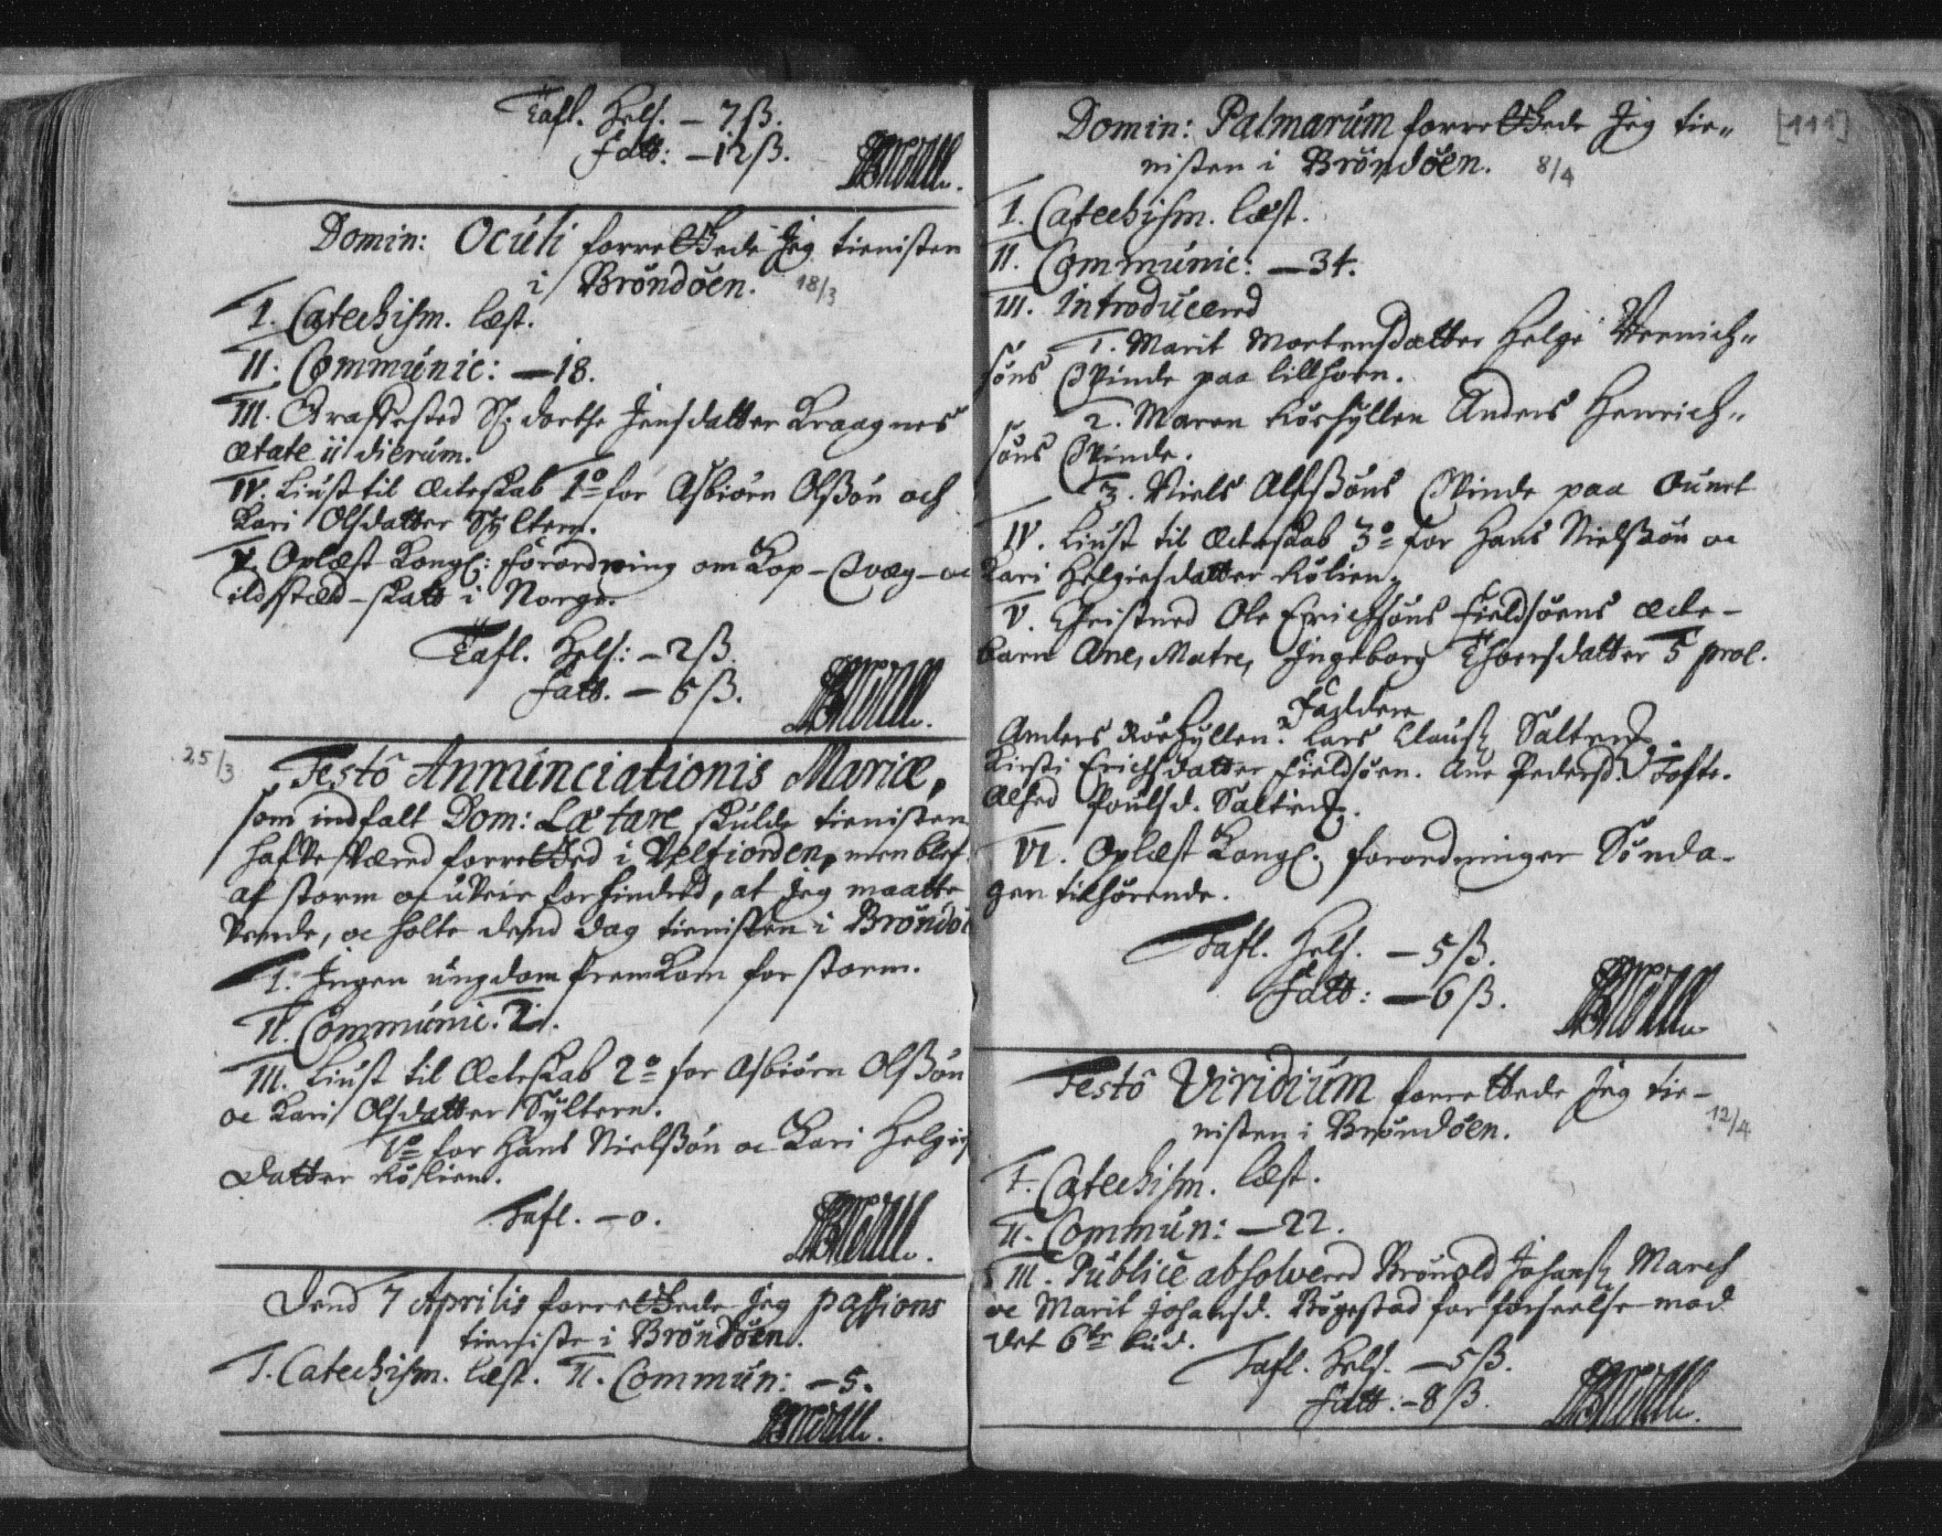 Tafl. Hels. – 7 ß.
Fatt: – 12 ß.
Domin: Oculi forrettede Jeg tienisten
i Brøndøen. 18/3
I. Catechism. læst.
II. Communic: – 18.
III. Graffested S. dorthe Jensdatter Kraagnes
ætate 11 dierum.
IV. Liust til Ecteskab 1º for Asbiørn Olsßøn och
Kari Olsdatter Sÿltern.
V. Oplæst Kongl: forordning om Kop – Qvæg – oc
ildsted – skatt i Norge.
Tafl. Hels: – 2 ß.
Fatt. – 6 ß.
25/3 Festô Annunciationis Mariæ,
som indfalt Dom: Lætare skulde tienisten
hafve været forretted i Velfiorden, men blef
af storm oc uveir forhindred, at Jeg maatte
vende, oc holte dend dag tienisten i Brøndø
I. Ingen ungdom fremkom for storm.
II. Communic. 21.
III. Liust til Ecteskab 2º for Asbiørn Olsßøn
oc Kari Olsdatter Sÿltern.
1º for Hans Nielsßøn oc Kari Helgies
datter Røslien.
Tafl. – 0.
Dend 7 Aprilis forrettede Jeg passions
tieniste i Brøndøen.
I. Catechism. læst. II. Commun: – 5.
Domin: Palmarum forrettede Jeg tie-
nisten i Brøndøen. 8/4
[111]
I. Catechism. læst.
II. Communic: – 34.
III. Introducered
1. Marit Mortensdatter Helge
søns Qvinde paa lillhorn.
2. Maren Rørhyllen Anders Henrich-
søns Qvinde.
3. Niels Alfsßøns Qvinde paa
IV. Liust til Ecteskab 3º for Hans Nielsßøn oc
Kari Helgiesdatter Røslien.
V. Christned Ole Erichsøns Fieldsøens ecte-
barn Ane, Matre, Ingeborg Thoersdatter 5 prol.
Faddere
Anders Rørhyllen. Lars Clausß
Kirsti Erichsdatter Fieldsøen. Ane Pedersd. Tofte.
Poulsd.
VI. Oplæst Kongl. forordninger Sønda-
gen tilhørende.
Tafl. Hels. – 5 ß.
Fatt: – 6 ß.
Festô Viridium forrettede Jeg tie-
nisten i Brøndøen. 12/4
I. Catechism. læst.
II. Commun: – 22.
III. Publicè absolvered Johansß March
oc Marit Johansd. Bøgestad for forseelse mod
det 6te bud.
Tafl. Hels. – 5 ß.
Fatt: – 8 ß.